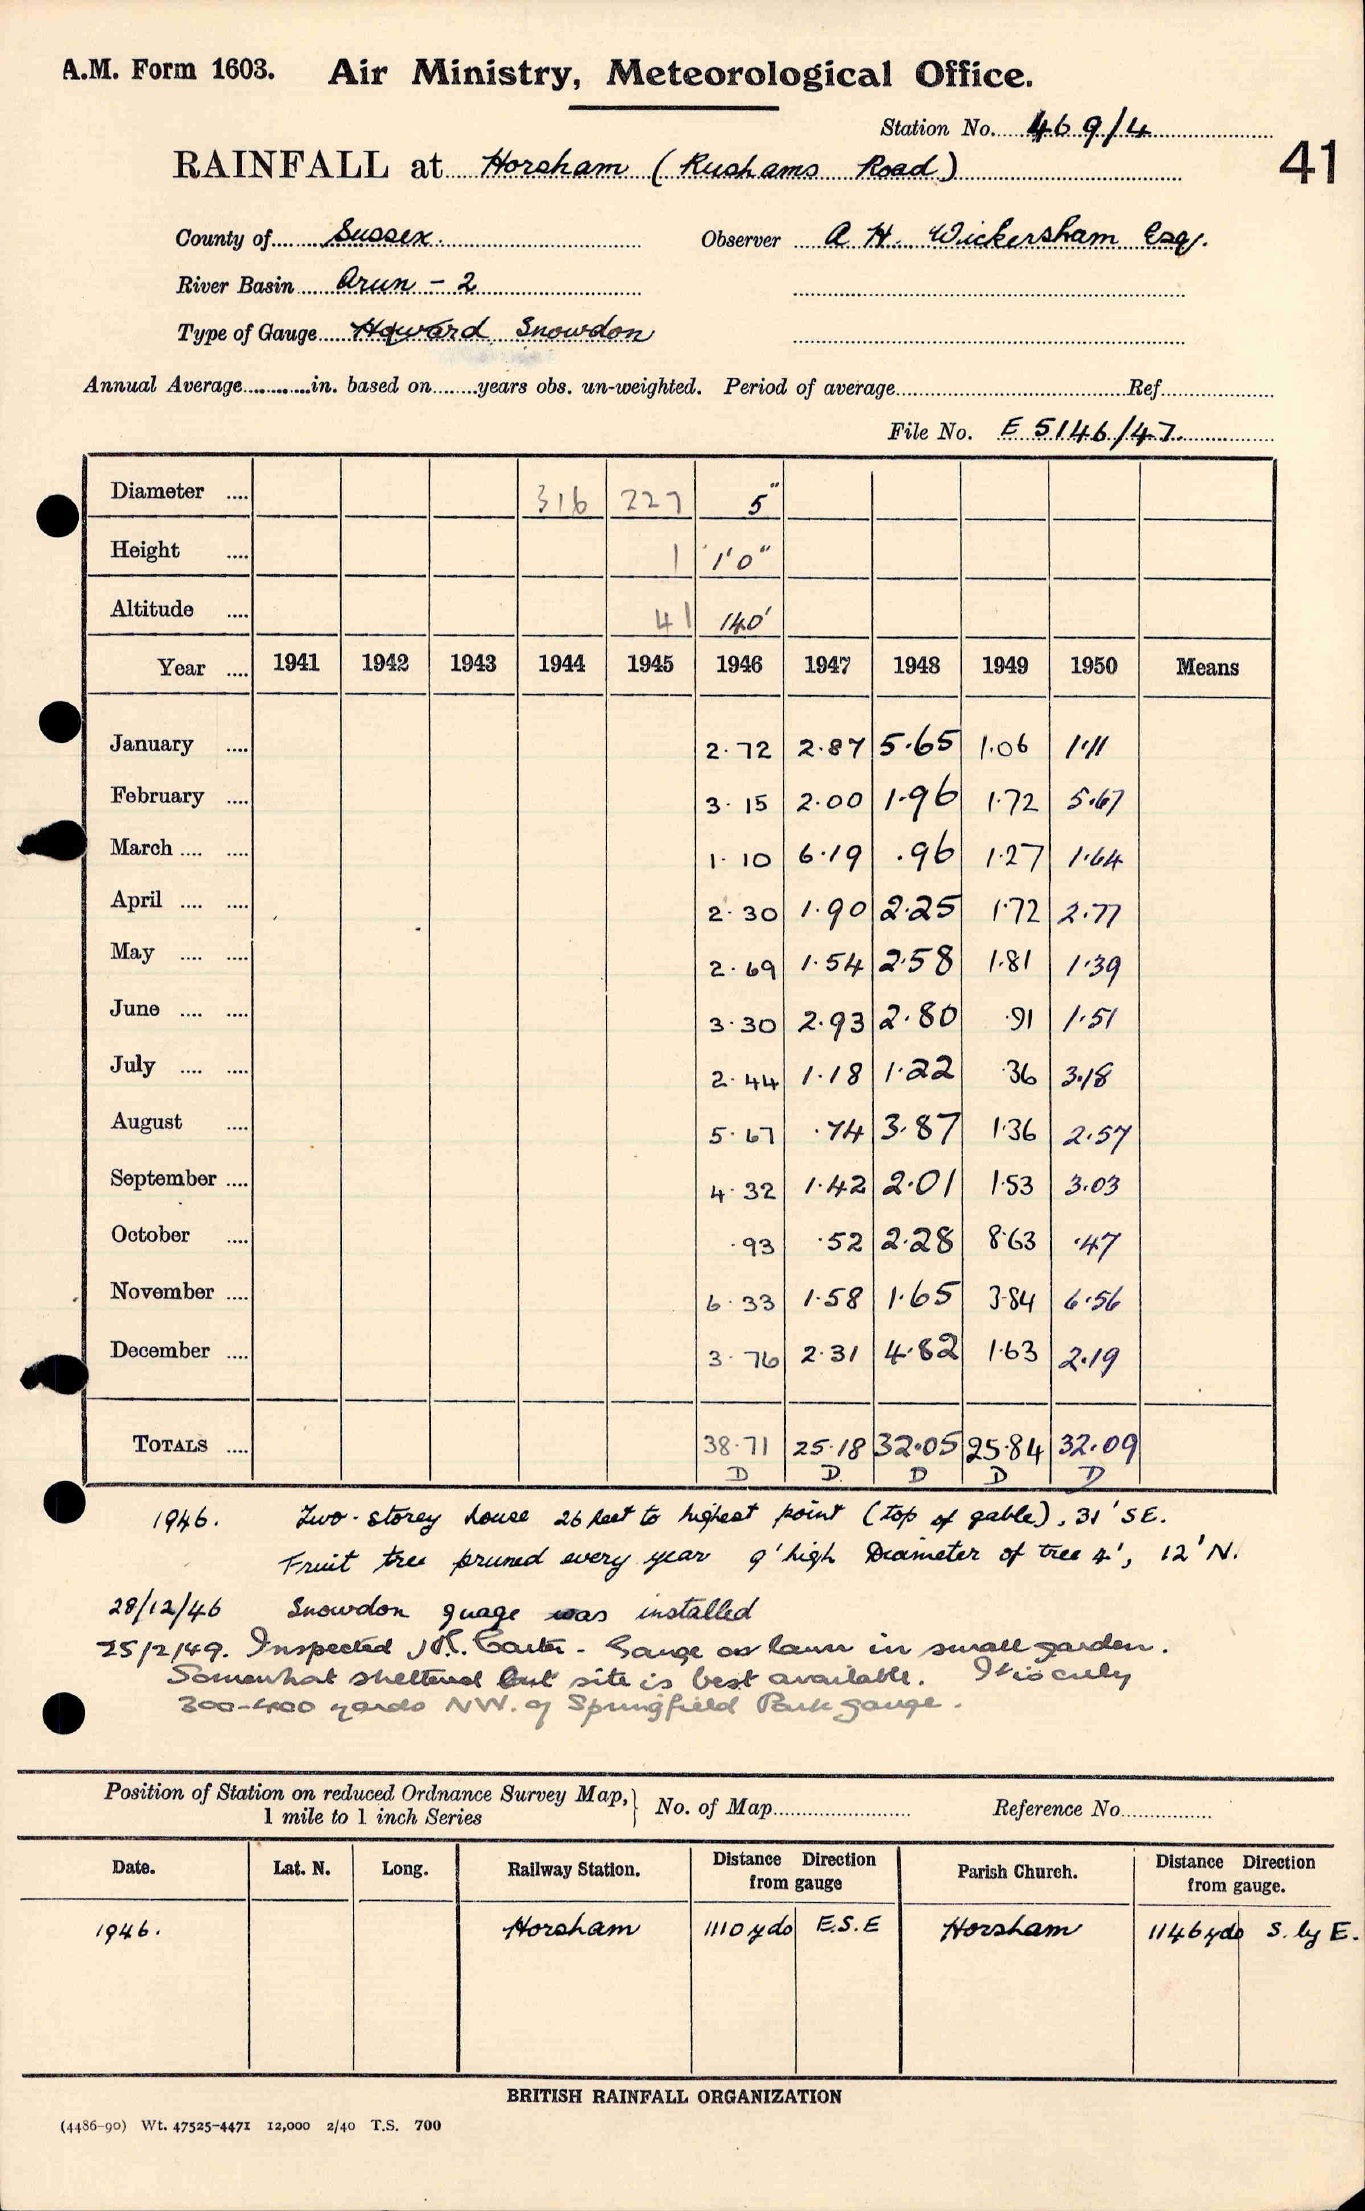 A.M. Form 1603. Air Ministry, Meteorological Office.
Station No. 469/4
41
RAINFALL at Horsham (Rushams Road)
County of Sussex. Observer A H. Wickersham Esq.
River Basin Arun - 2
Type of Gauge Howard Snowdon
Annual Average in. based on years obs. un-weighted. Period of average Ref
File No. E 5146/47.
Diameter 316 227 5"
Height 1 1'0"
Altitude 41 140'
Year 1941 1942 1943 1944 1945 1946 1947 1948 1949 1950 Means
January 2.72 2.87 5.65 1.06 1.11
February 3.15 2.00 1.96 1.72 5.67
March 1.10 6.19 .96 1.27 1.64
April 2.30 1.90 2.25 1.72 2.77
May 2.69 1.54 2.58 1.81 1.39
June 3.30 2.93 2.80 .91 1.51
July 2.44 1.18 1.22 .36 3.18
August 5.67 .74 3.87 1.36 2.57
September 4.32 1.42 2.01 1.53 3.03
October .93 .52 2.28 8.63 .47
November 6.33 1.58 1.65 3.84 6.56
December 3.76 2.31 4.82 1.63 2.19
TOTALS 38.71 25.18 32.05 25.84 32.09
D D D D D
1946. Two-storey house 26 feet to highest point (top of gable), 31' SE.
Fruit tree pruned every year 9' high Diameter of tree 4', 12' N.
28/12/46 Snowdon guage was installed
25/2/49. Inspected Carter - Gauge on lawn in small garden.
Somewhat sheltered but site is best available. It is only
300-400 yards NW. of Springfield Park gauge.
Position of Station on reduced Ordnance Survey Map, No. of Map Reference No.
1 mile to 1 inch Series
Date. Lat. N. Long. Railway Station. Distance Direction from gauge Parish Church. Distance Direction from gauge.
1946. Horsham 1110 yds E.S.E Horsham 1146 yds S. by E.
BRITISH RAINFALL ORGANIZATION
(4486-90) Wt. 47525-4471 12,000 2/40 T.S. 700